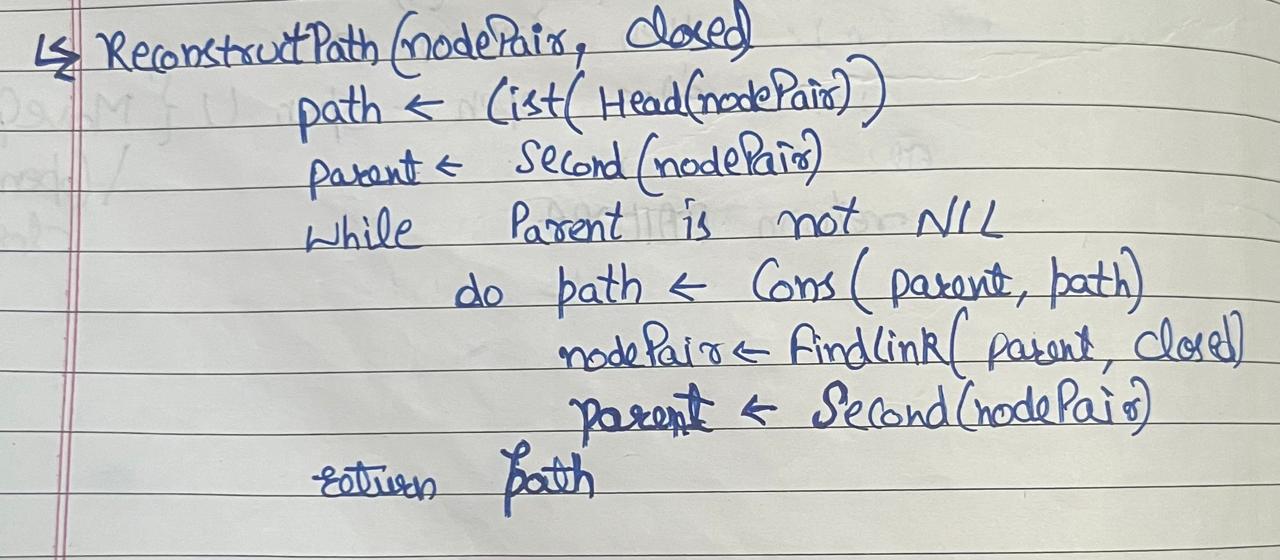 ↳ ReconstructPath (nodePair, Closed)
path ← List( Head(nodePair))
parent ← Second (nodePair)
While Parent is not NIL
do path ← Cons ( parent, path)
nodePair ← FindLink( parent, Closed)
parent ← Second (nodePair)
return path